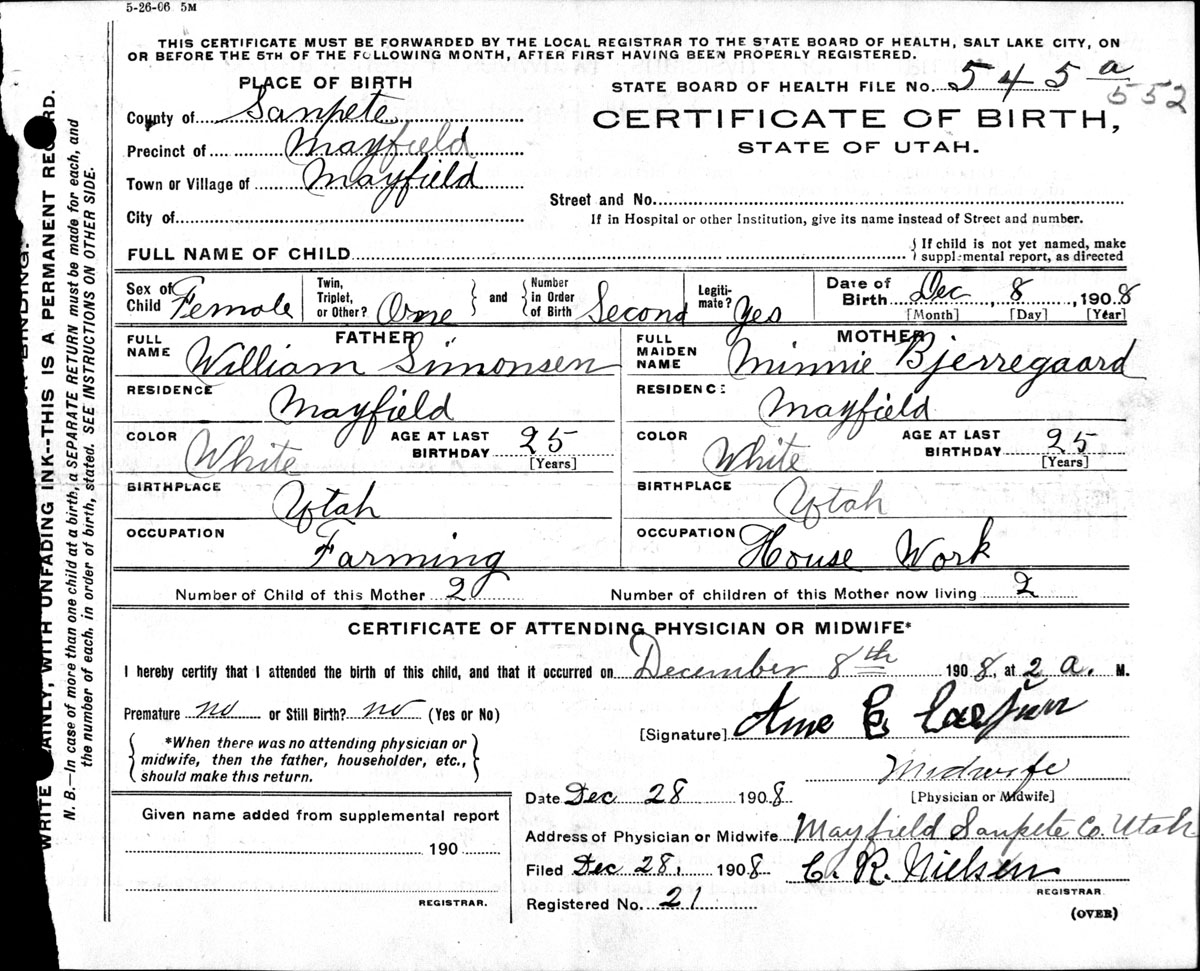 5-26-06 5M
THIS CERTIFICATE MUST BE FORWARDED BY THE LOCAL REGISTRAR TO THE STATE BOARD OF HEALTH, SALT LAKE CITY, ON
OR BEFORE THE 5TH OF THE FOLLOWING MONTH, AFTER FIRST HAVING BEEN PROPERLY REGISTERED.
PLACE OF BIRTH
STATE BOARD OF HEALTH FILE No. 545 a
552
County of Sanpete
CERTIFICATE OF BIRTH,
STATE OF UTAH.
Precinct of Mayfield
Town or Village of Mayfield
Street and No.
City of
If in Hospital or other Institution, give its name instead of Street and number.
FULL NAME OF CHILD
{ If child is not yet named, make
supplemental report, as directed
Sex of Child Female
Twin, Triplet, or Other? One } and { Number in Order of Birth Second
Legiti-mate? Yes
Date of Birth Dec, 8, 1908
[Month] [Day] [Year]
FATHER
FULL NAME William Simonsen
RESIDENCE Mayfield
COLOR White AGE AT LAST BIRTHDAY 25
[Years]
BIRTHPLACE Utah
OCCUPATION Farming
MOTHER
FULL MAIDEN NAME Minnie Bjerregaard
RESIDENCE Mayfield
COLOR White AGE AT LAST BIRTHDAY 25
[Years]
BIRTHPLACE Utah
OCCUPATION House Work
Number of Child of this Mother 2
Number of children of this Mother now living 2
CERTIFICATE OF ATTENDING PHYSICIAN OR MIDWIFE*
I hereby certify that I attended the birth of this child, and that it occurred on December 8th 1908, at 2 a. M.
Premature no or Still Birth? no (Yes or No)
[Signature]
{ *When there was no attending physician or
midwife, then the father, householder, etc.,
should make this return. }
Midwife
[Physician or Midwife]
Date Dec 28 1908
Address of Physician or Midwife Mayfield Sanpete Co. Utah
Filed Dec 28, 1908 C. R. Nielsen
REGISTRAR
Registered No. 21
(OVER)
Given name added from supplemental report
190
REGISTRAR.
BINDING.
WRITE PLAINLY, WITH UNFADING INK--THIS IS A PERMANENT RECORD.
N. B.—In case of more than one child at a birth, a SEPARATE RETURN must be made for each, and
the number of each, in order of birth, stated. SEE INSTRUCTIONS ON OTHER SIDE.